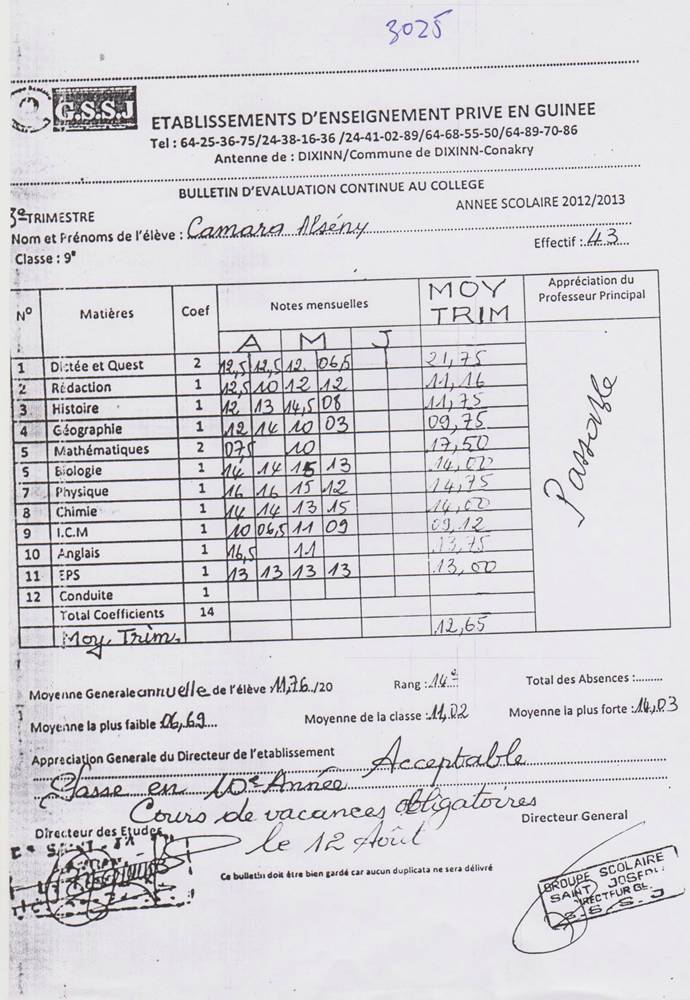 3025
G.S.S.J
ETABLISSEMENTS D'ENSEIGNEMENT PRIVE EN GUINEE
Tel : 64-25-36-75/24-38-16-36 /24-41-02-89/64-68-55-50/64-89-70-86
Antenne de : DIXINN/Commune de DIXINN-Conakry
BULLETIN D'EVALUATION CONTINUE AU COLLEGE
ANNEE SCOLAIRE 2012/2013
3e TRIMESTRE
Nom et Prénoms de l'élève : Camara Alsény
Effectif : 43
Classe : 9e
N° Matières Coef Notes mensuelles MOY TRIM Appréciation du Professeur Principal
A M J
1 Dictée et Quest 2 12,5 12,5 12. 06,5 21,75
2 Rédaction 1 12,5 10 12 12 11,16
3 Histoire 1 12 13 14,5 08 11,75
4 Géographie 1 12 14 10 03 09,75
5 Mathématiques 2 07,5 10 17,50
5 Biologie 1 14 14 15 13 14,00
7 Physique 1 16 16 15 12 14,75
8 Chimie 1 14 14 13 15 14,00
9 I.C.M 1 10 06,5 11 09 09,12
10 Anglais 1 16,5 11 13,75
11 EPS 1 13 13 13 13 13,00
12 Conduite 1
Total Coefficients 14
Moy. Trim. 12,65
Passable
Moyenne Generale annuelle de l'élève 11,76 /20 Rang : 14e Total des Absences :.........
Moyenne la plus faible 06,69 Moyenne de la classe : 11,02 Moyenne la plus forte : 14,03
Appreciation Generale du Directeur de l'etablissement Acceptable
Passe en 10e Année
Cours de vacances obligatoires
le 12 Août
Directeur des Etudes
Directeur General
Ce bulletin doit être bien gardé car aucun duplicata ne sera délivré
GROUPE SCOLAIRE
SAINT JOSEPH
DIRECTEUR GE.
G. S. S. J